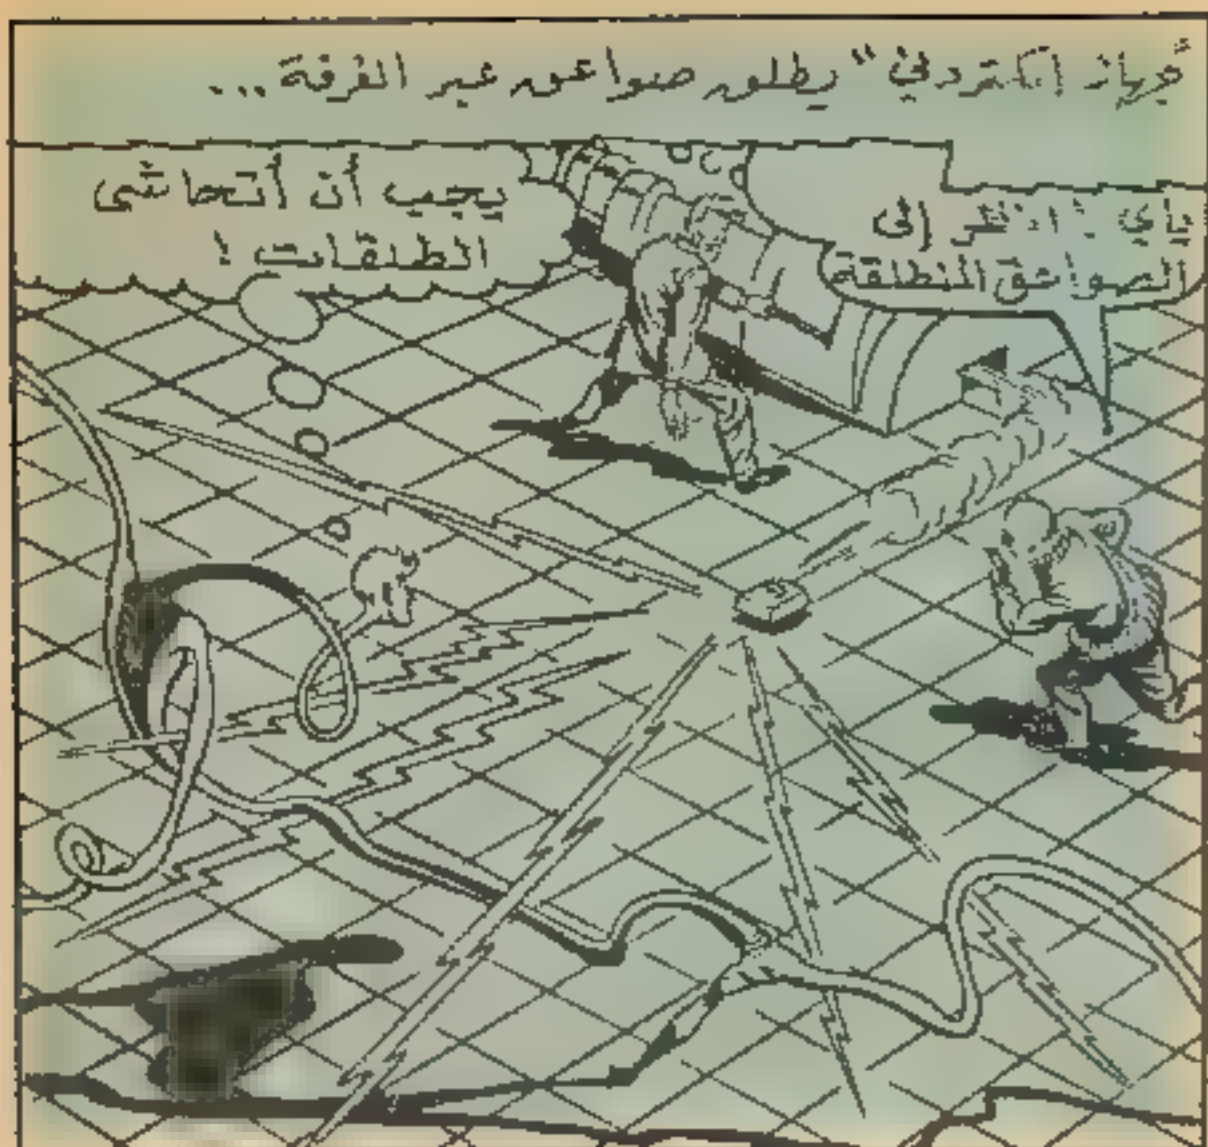 جهاز إلكتروني" يطلق صواعق عبر الغرفة...
ياي! انظر إلى
الصواعق المنطلقة
يجب أن أتحاشى
الطلقات!